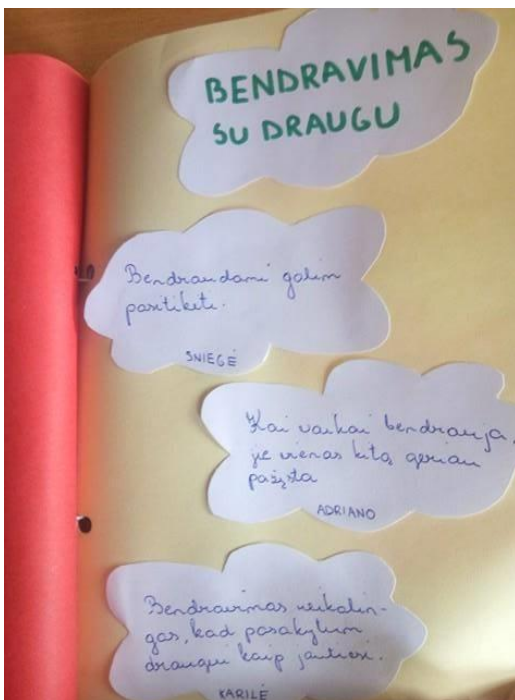 BENDRAVIMAS
SU DRAUGU
Bendraudami galim
pasitikėti.
SNIEGĖ
Kai vaikai bendrauja,
jie vienas kitą geriau
pažįsta
ADRIANO
Bendravimas reikalin-
gas, kad pasakytum
draugui kaip jautiesi.
KARILĖ